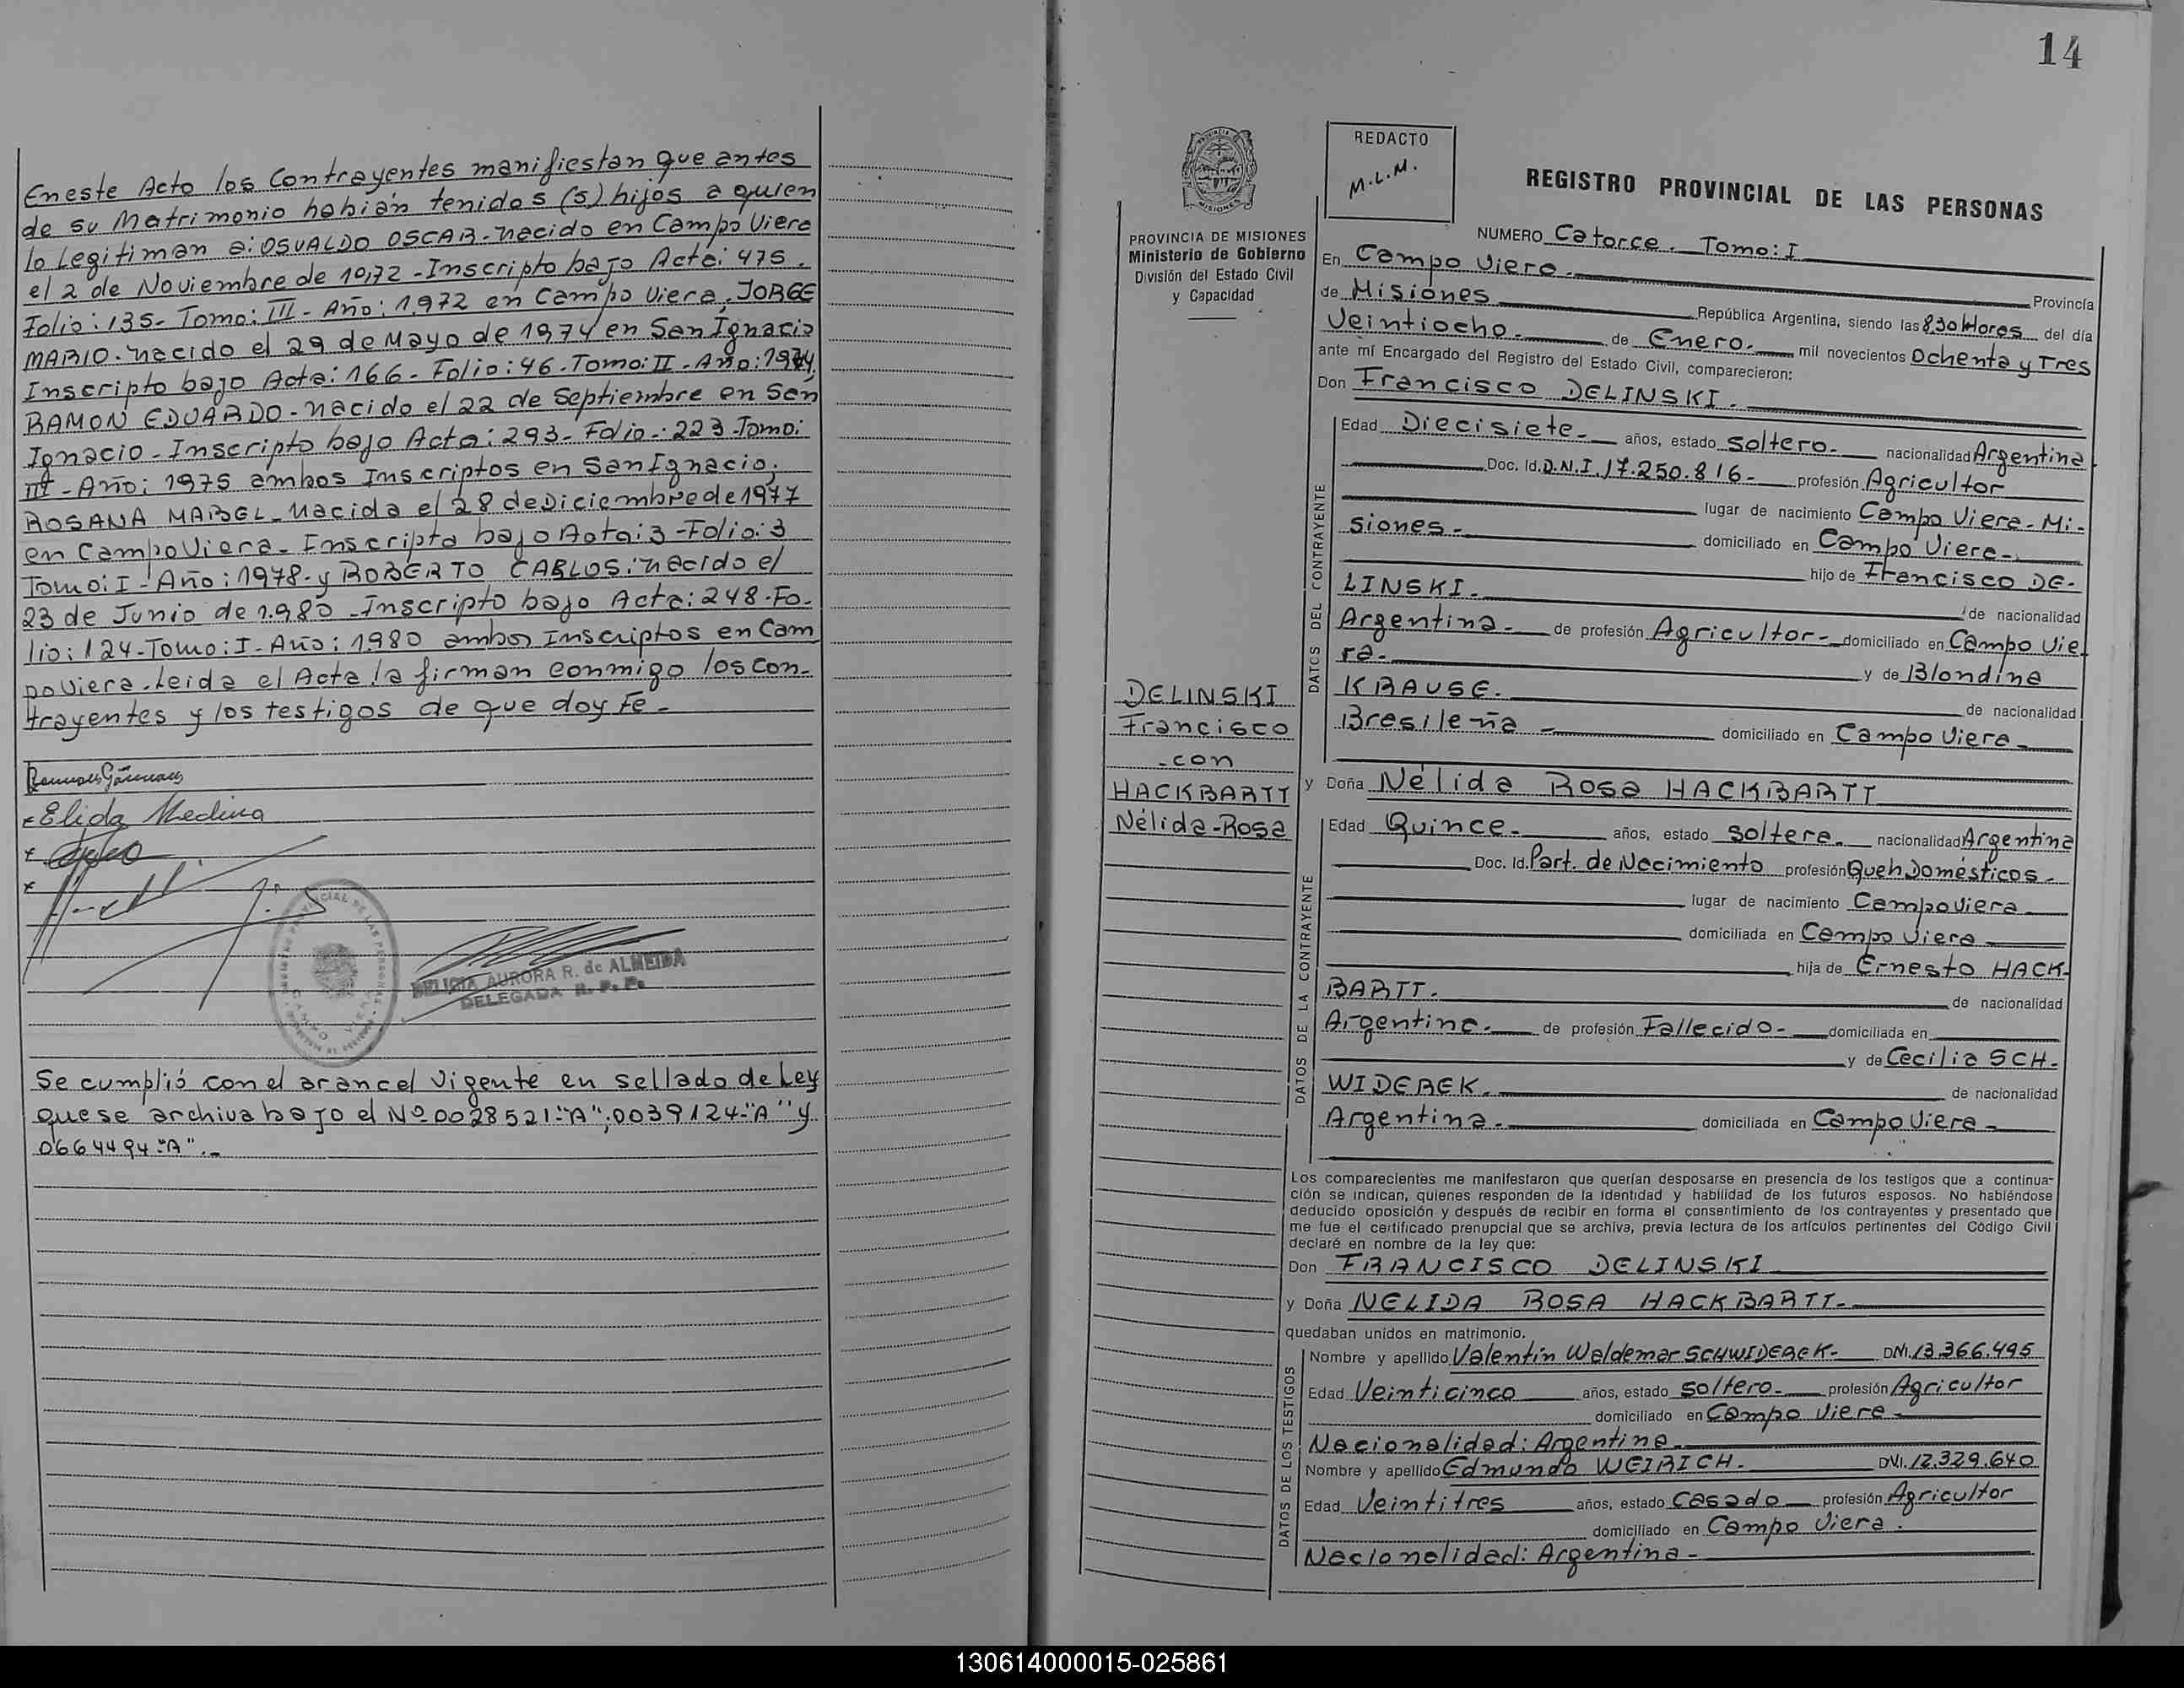 En este Acto los Contrayentes manifiestan que antes
de su Matrimonio habian tenidos (5) hijos a quien
lo Legitiman a: OSVALDO OSCAR - nacido en Campo Viera
el 2 de Noviembre de 1972 - Inscripto bajo Acta: 475.
Folio: 135 - Tomo: III - Año: 1.972 en Campo Viera, JORGE
MARIO - nacido el 29 de Mayo de 1974 en San Ignacio
Inscripto bajo Acta: 166 - Folio: 46 - Tomo: II - Año: 1974,
RAMON EDUARDO - nacido el 22 de Septiembre en San
Ignacio - Inscripto bajo Acta: 293 - Folio -: 223 Tomo:
III - Año: 1975 ambos Inscriptos en San Ignacio;
ROSANA MABEL - Nacida el 28 de Diciembre de 1977
en Campo Viera - Inscripta bajo Acta: 3 - Folio: 3
Tomo: I - Año: 1978 - y ROBERTO CARLOS: nacido el
23 de Junio de 1.980 - Inscripto bajo Acta: 248 - Fo-
lio: 124 - Tomo: I - Año: 1980 ambos Inscriptos en Cam
po Viera. Leida el Acta la firman conmigo los con-
trayentes y los testigos de que doy Fe -
Elida Medina
DELICIA AURORA R. de ALMEIDA
DELEGADA R. P. P.
Se cumplió con el arancel Vigente en sellado de Ley
que se archiva bajo el Nº 0028521-"A"; 0039124-"A" y
0664494-"A".-
14
REDACTO
M.L.M.
PROVINCIA DE MISIONES
Ministerio de Gobierno
División del Estado Civil
y Capacidad
REGISTRO PROVINCIAL DE LAS PERSONAS
NUMERO Catorce. Tomo: I
En Campo Viera. Provincia
de Misiones República Argentina, siendo las 8,30 Horas del día
Veintiocho - de Enero. - mil novecientos Ochenta y Tres
ante mí Encargado del Registro del Estado Civil, comparecieron:
Don Francisco DELINSKI.
DATOS DEL CONTRAYENTE
Edad Diecisiete - años, estado soltero. - nacionalidad Argentina.
Doc. Id. D.N.I. 17.250.816 - profesión Agricultor
lugar de nacimiento Campo Viera - Mi-
siones - domiciliado en Campo Viera -
hijo de Francisco DE-
LINSKI. de nacionalidad
Argentina - de profesión Agricultor - domiciliado en Campo Vie
ra - y de Blondina
KRAUSE. de nacionalidad
Brasileña - domiciliado en Campo Viera
DELINSKI
Francisco
-con
HACKBARTT
Nélida-Rosa
y Doña Nélida Rosa HACKBARTT
DATOS DE LA CONTRAYENTE
Edad Quince - años, estado soltera. nacionalidad Argentina
Doc. Id. Part. de Nacimiento profesión Queh Domésticos -
lugar de nacimiento Campo Viera
domiciliada en Campo Viera
hija de Ernesto HACK-
BARTT. de nacionalidad
Argentina - de profesión Fallecido - domiciliada en
y de Cecilia SCH-
WIDEREK. de nacionalidad
Argentina - domiciliada en Campo Viera -
Los comparecientes me manifestaron que querían desposarse en presencia de los testigos que a continua-
ción se indican, quienes responden de la identidad y habilidad de los futuros esposos. No habiéndose
deducido oposición y después de recibir en forma el consentimiento de los contrayentes y presentado que
me fue el certificado prenupcial que se archiva, previa lectura de los artículos pertinentes del Código Civil
declaré en nombre de la ley que:
Don FRANCISCO DELINSKI
y Doña NELIDA ROSA HACKBARTT -
quedaban unidos en matrimonio.
DATOS DE LOS TESTIGOS
Nombre y apellido Valentín Waldemar SCHWIDEREK - DNI. 13.366.495
Edad Veinticinco años, estado soltero - profesión Agricultor
domiciliado en Campo Viera
Nacionalidad: Argentina
Nombre y apellido Edmundo WEIRICH. DNI. 12.329.640
Edad Veintitres años, estado casado - profesión Agricultor
domiciliado en Campo Viera.
Nacionalidad: Argentina -
130614000015-025861